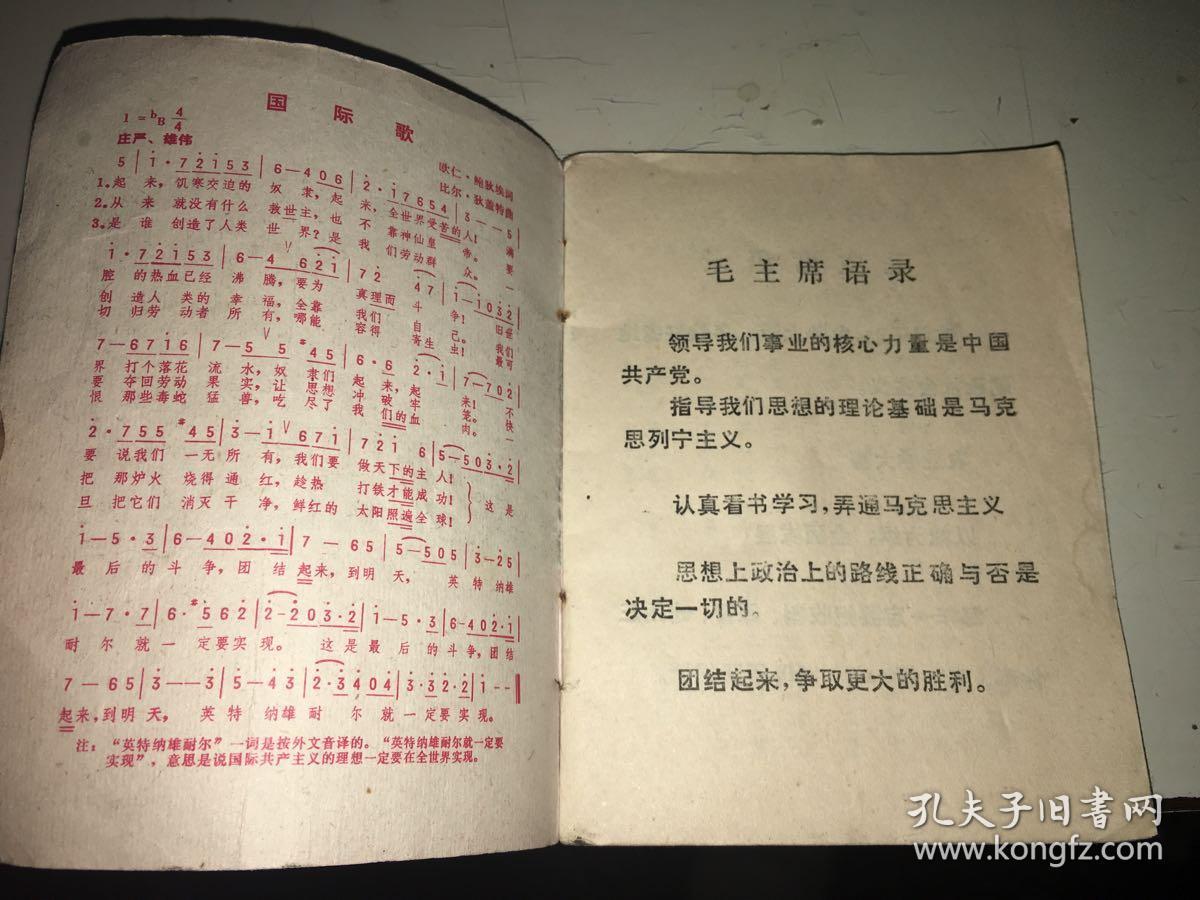 国际歌
1=ᵇB 4/4
庄严、雄伟
欧仁·鲍狄埃词
比尔·狄盖特曲
5|1·7215 3|6—40 6|2·1 7 6 5 4|3——5
1.起 来，饥寒交迫的 奴 隶，起 来，全世界受苦的人！ 满
2.从 来 就没有什么 救世主，也 不 靠神仙皇 帝。 要
3.是 谁 创造了人类 世 界？是 我 们劳动群 众。 一
1·7215 3|6—4 621|72 47|1—1032
腔 的热血已经 沸 腾，要为 真理而 斗 争！ 旧世
创 造人 类的 幸 福，全靠 我们 自 己。 我们
切 归劳 动者 所 有，哪能 容得 寄生 虫！ 最可
7—6716|7—5 5 #45|6·6 2·1|7—702
界 打个落花 流 水，奴 隶们 起 来，起 来！ 不
要 夺回劳动 果 实，让 思想 冲 破牢 笼。 快
恨 那些毒蛇 猛 兽，吃 尽了 我 们的血 肉。 一
2·755 #45|3—1 671|721 6|5—503·2
要 说我们 一无 所 有，我们要 做天下的主 人！
把 那炉火 烧得 通 红，趁热 打铁才能成 功！ 这 是
旦 把它们 消灭 干 净，鲜红的 太阳照遍全 球！
1—5·3|6—402·1|7—65|5—505|3—25
最 后 的 斗 争，团 结 起来，到明 天， 英 特 纳雄
1—7·7|6·#562|2—203·2|1—5·3|6—402·1
耐 尔 就 一 定要实 现。 这 是 最 后 的 斗 争，团结
7—65|3——3|5—43|2·3404|3·32·2|1--
起来，到明 天， 英 特 纳雄 耐 尔 就 一 定要 实现。
注：“英特纳雄耐尔”一词是按外文音译的。“英特纳雄耐尔就一定要
实现”，意思是说国际共产主义的理想一定要在全世界实现。
毛主席语录
领导我们事业的核心力量是中国
共产党。
指导我们思想的理论基础是马克
思列宁主义。
认真看书学习，弄通马克思主义
思想上政治上的路线正确与否是
决定一切的。
团结起来，争取更大的胜利。
孔夫子旧书网
www.kongfz.com